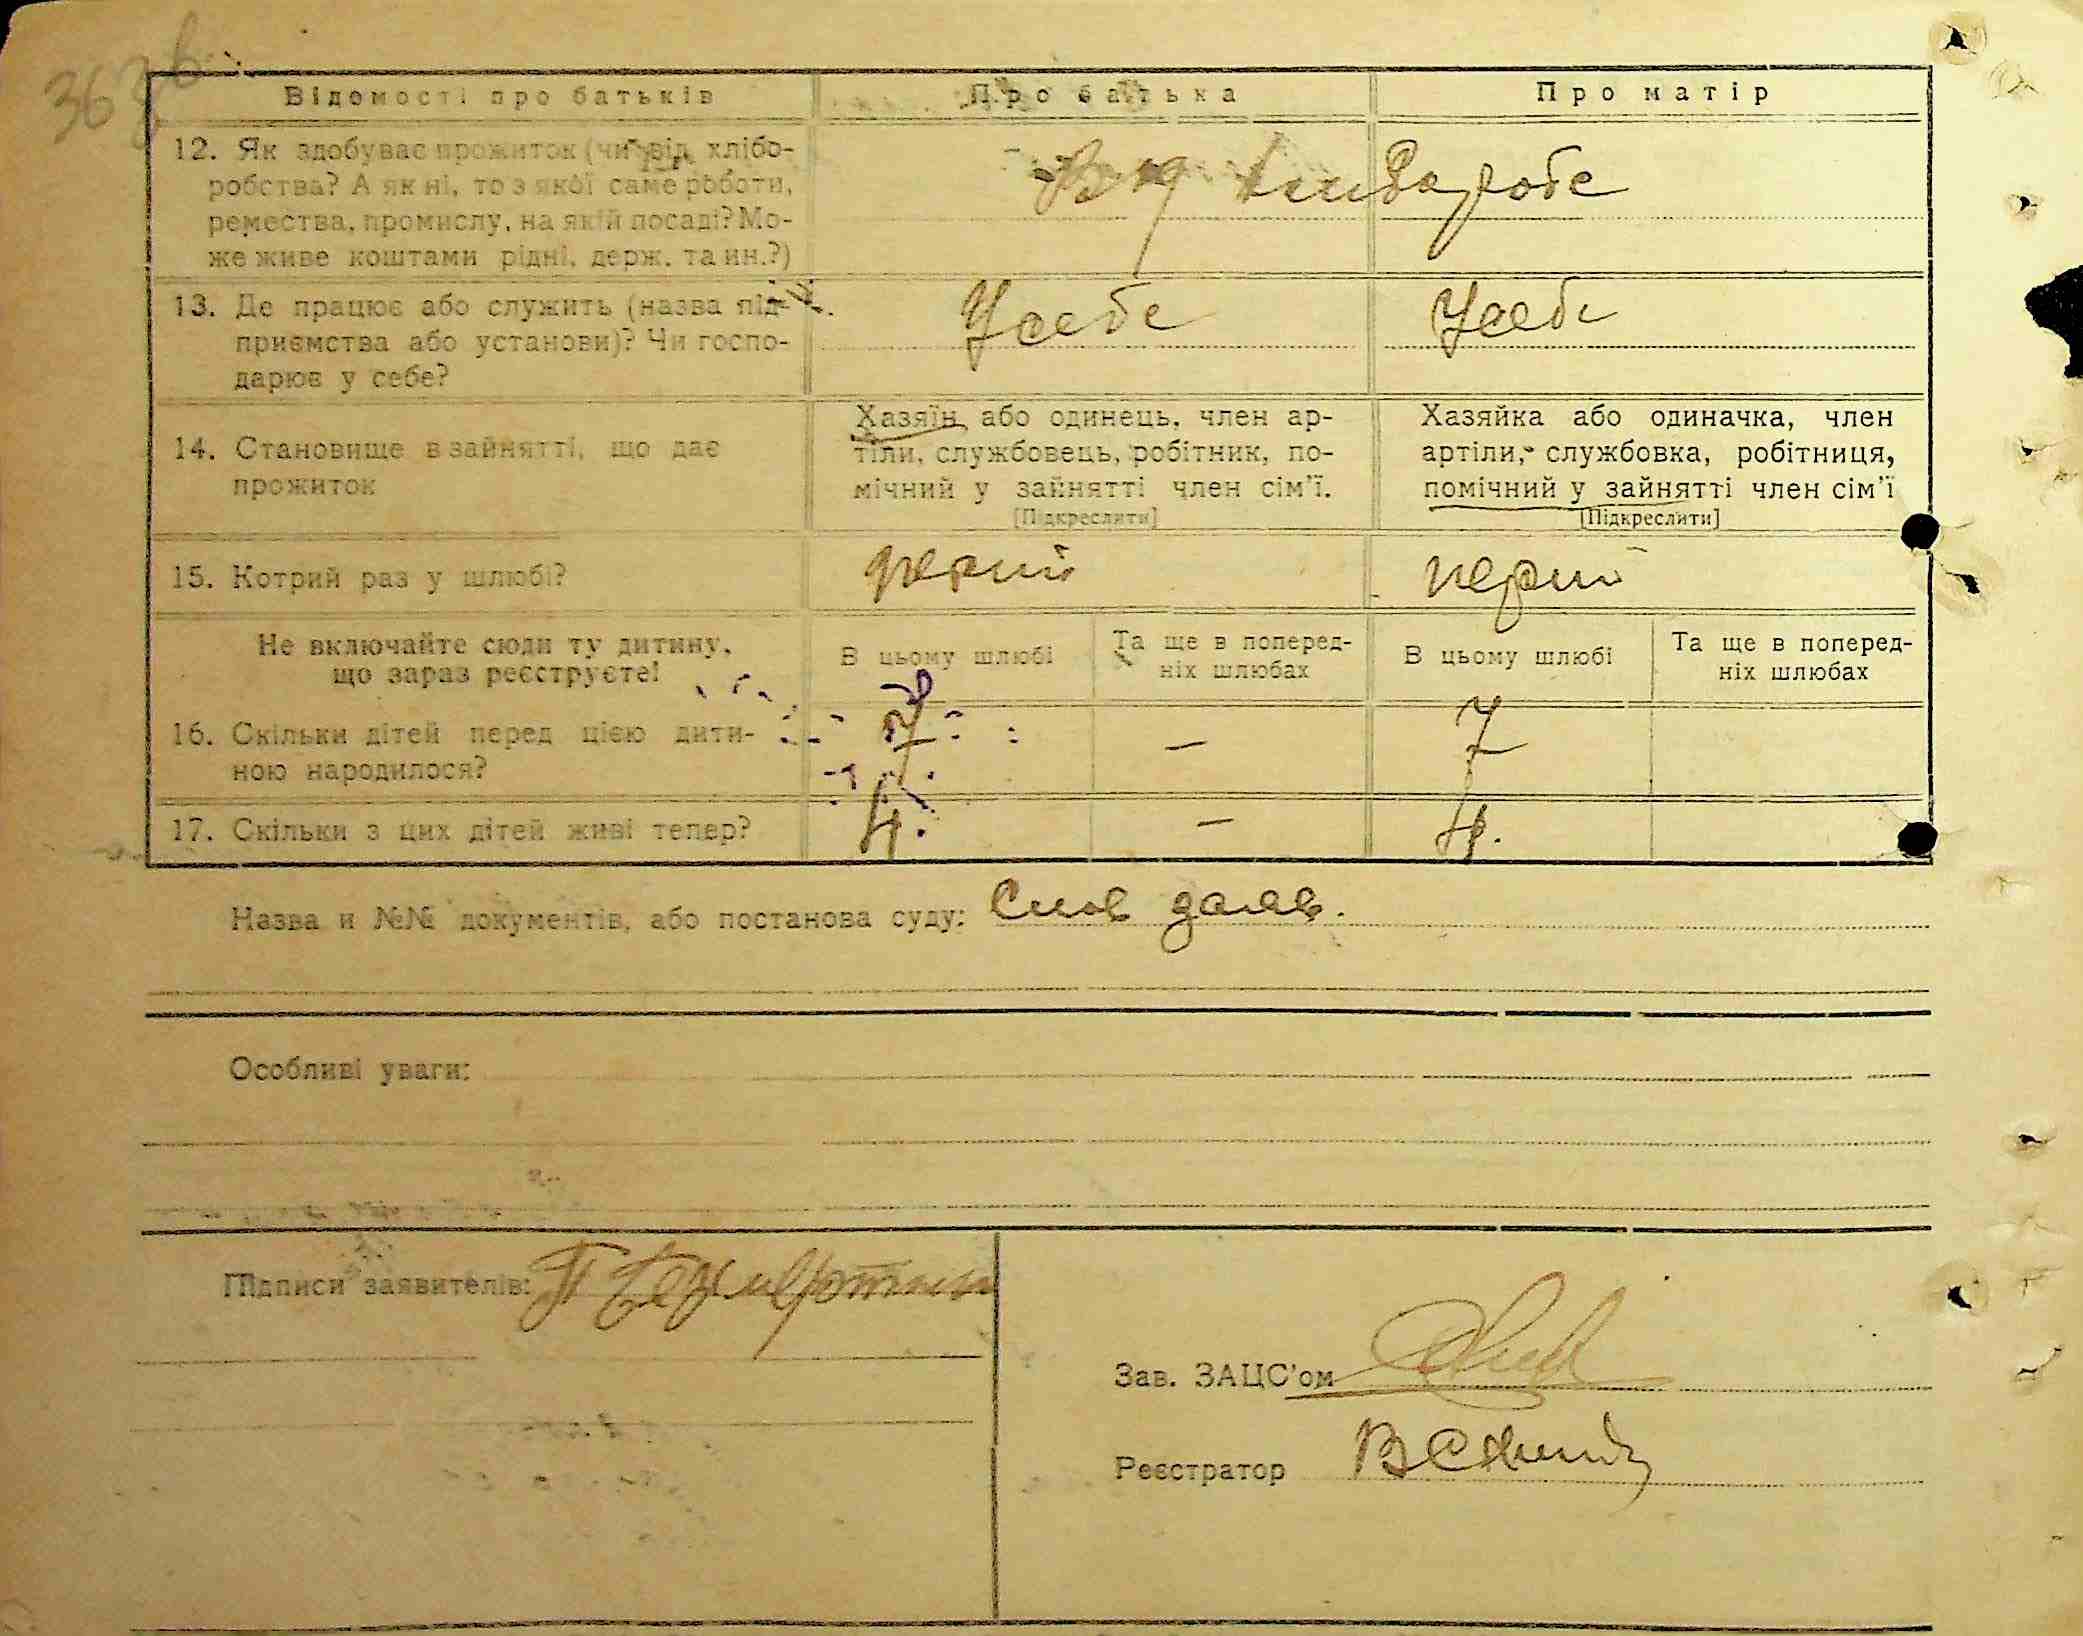 36 зв
Відомості про батьків
Про батька
Про матір
12. Як здобуває прожиток (чи від хлібо-
робства? А як ні, то з якої саме роботи,
ремества, промислу, на якій посаді? Мо-
же живе коштами рідні, держ. та ин.?)
Від хліборобс
13. Де працює або служить (назва під-
приємства або установи)? Чи госпо-
дарює у себе?
У себе
У себе
14. Становище в зайнятті, що дає
прожиток
Хазяїн або одинець, член ар-
тіли, службовець, робітник, по-
мічний у зайнятті член сім'ї.
[Підкреслити]
Хазяйка або одиначка, член
артіли, службовка, робітниця,
помічний у зайнятті член сім'ї
[Підкреслити]
15. Котрий раз у шлюбі?
перший
перший
Не включайте сюди ту дитину,
що зараз реєструєте!
В цьому шлюбі
Та ще в поперед-
ніх шлюбах
В цьому шлюбі
Та ще в поперед-
ніх шлюбах
16. Скільки дітей перед цією дити-
ною народилося?
7
—
7
17. Скільки з цих дітей живі тепер?
4.
—
4.
Назва и №№ документів, або постанова суду: Слов заяв.
Особливі уваги:
Підписи заявителів:
Зав. ЗАЦС'ом
Реєстратор